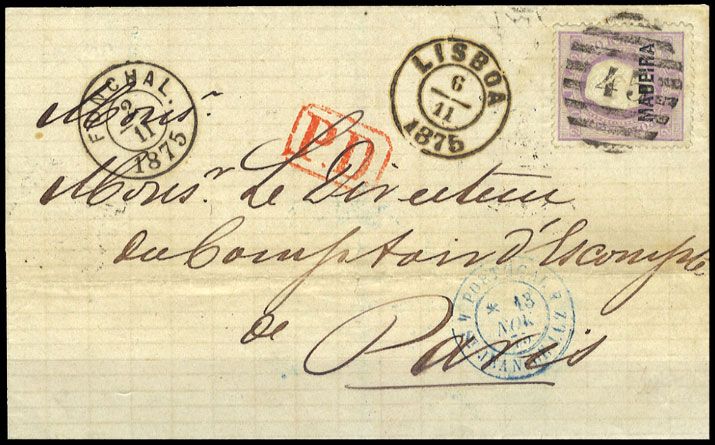 FUNCHAL.
2
11
1875
LISBOA
6
11
1875
45
MADEIRA
PD
Monsr.
Monsr. Le Directeur
du Comptoir d'Escompte
de
Paris
PORTUGAL
* 13
NOV
75
ST JEAN DE LUZ